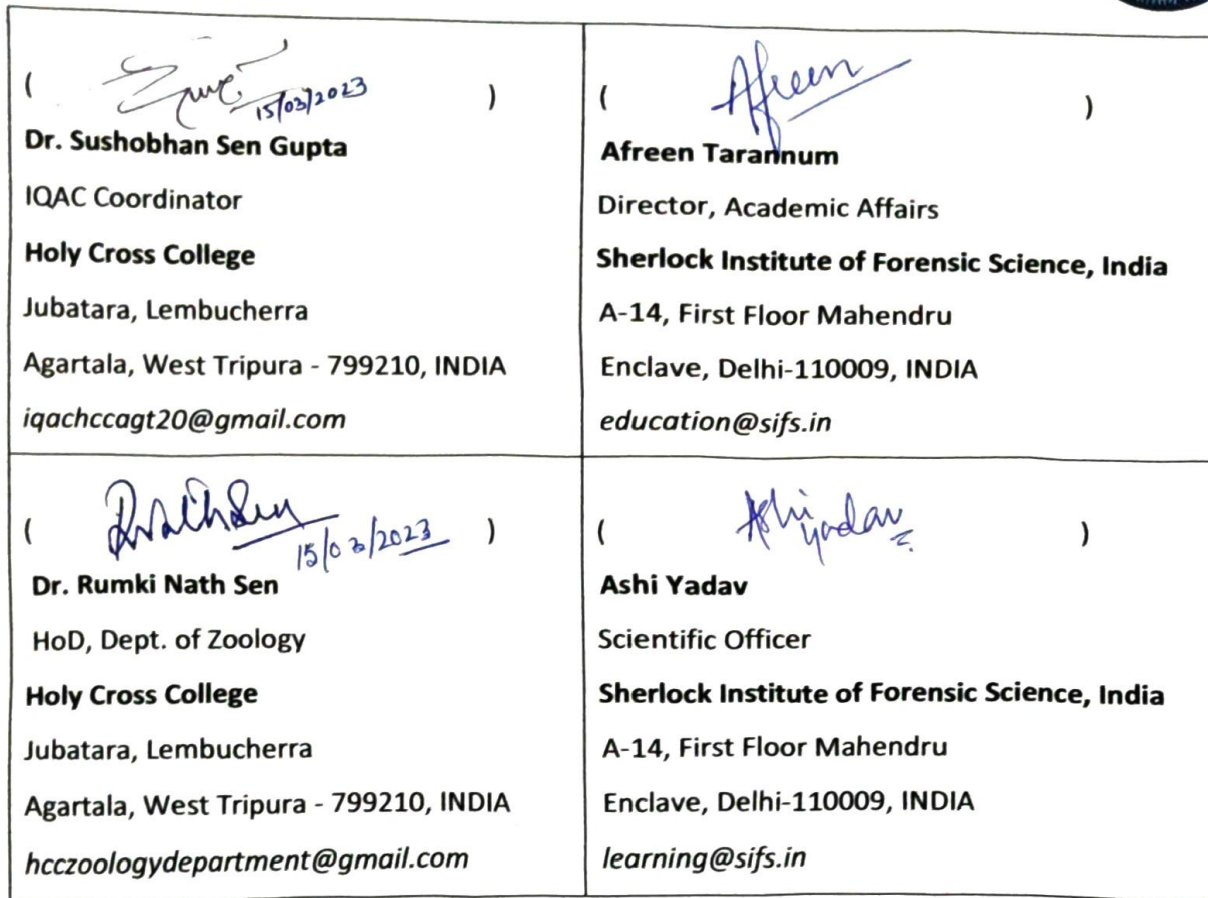 ( 15/03/2023 )
Dr. Sushobhan Sen Gupta
IQAC Coordinator
Holy Cross College
Jubatara, Lembucherra
Agartala, West Tripura - 799210, INDIA
iqachccagt20@gmail.com
( Afreen )
Afreen Tarannum
Director, Academic Affairs
Sherlock Institute of Forensic Science, India
A-14, First Floor Mahendru
Enclave, Delhi-110009, INDIA
education@sifs.in
( RNath Sen 15/03/2023 )
Dr. Rumki Nath Sen
HoD, Dept. of Zoology
Holy Cross College
Jubatara, Lembucherra
Agartala, West Tripura - 799210, INDIA
hcczoologydepartment@gmail.com
( Ashi
yadav )
Ashi Yadav
Scientific Officer
Sherlock Institute of Forensic Science, India
A-14, First Floor Mahendru
Enclave, Delhi-110009, INDIA
learning@sifs.in